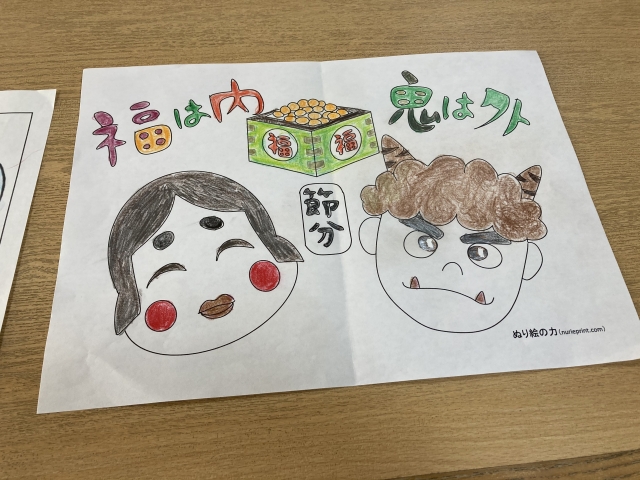 福は内
鬼は外
福 福
節分
ぬり絵の力 (nurieprint.com)